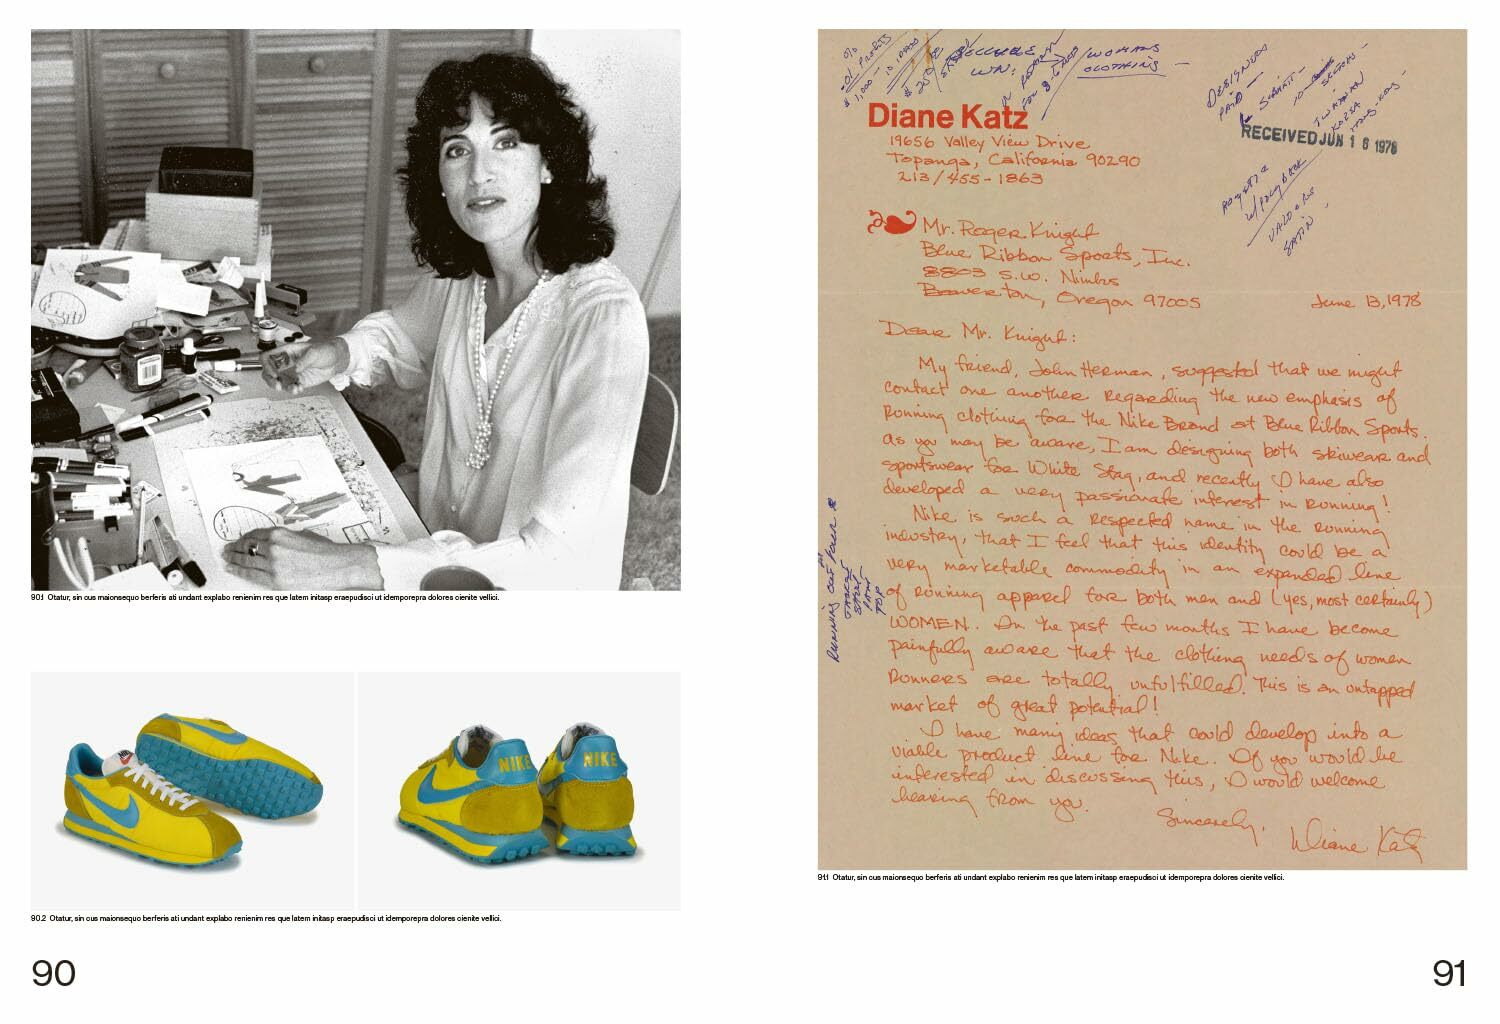 90.1 Otatur, sin cus maionsequo berferis ati undant explabo renienim res que latem initasp eraepudisci ut idemporepra dolores cienite vellici.
NIKE
NIKE
90.2 Otatur, sin cus maionsequo berferis ati undant explabo renienim res que latem initasp eraepudisci ut idemporepra dolores cienite vellici.
90
WOMANS
CLOTHING
DESIGNER
PAID
SUBMIT
KOREA
HONG-KONG
SATIN
RECEIVED JUN 16 1978
Diane Katz
19656 Valley View Drive
Topanga, California 90290
213/455-1863
Mr. Roger Knight
Blue Ribbon Sports, Inc.
8803 S.W. Nimbus
Beaverton, Oregon 97005
June 13, 1978
Dear Mr. Knight:
My friend, John Herman, suggested that we might
contact one another regarding the new emphasis of
running clothing for the Nike Brand at Blue Ribbon Sports.
As you may be aware, I am designing both skiwear and
sportswear for White Stag, and recently I have also
developed a very passionate interest in running!
Nike is such a respected name in the running
industry, that I feel that this identity could be a
very marketable commodity in an expanded line
of running apparel for both men and (yes, most certainly)
WOMEN. In the past few months I have become
painfully aware that the clothing needs of women
runners are totally unfulfilled. This is an untapped
market of great potential!
I have many ideas that could develop into a
viable product line for Nike. If you would be
interested in discussing this, I would welcome
hearing from you.
Sincerely,
Diane Katz
91.1 Otatur, sin cus maionsequo berferis ati undant explabo renienim res que latem initasp eraepudisci ut idemporepra dolores cienite vellici.
91